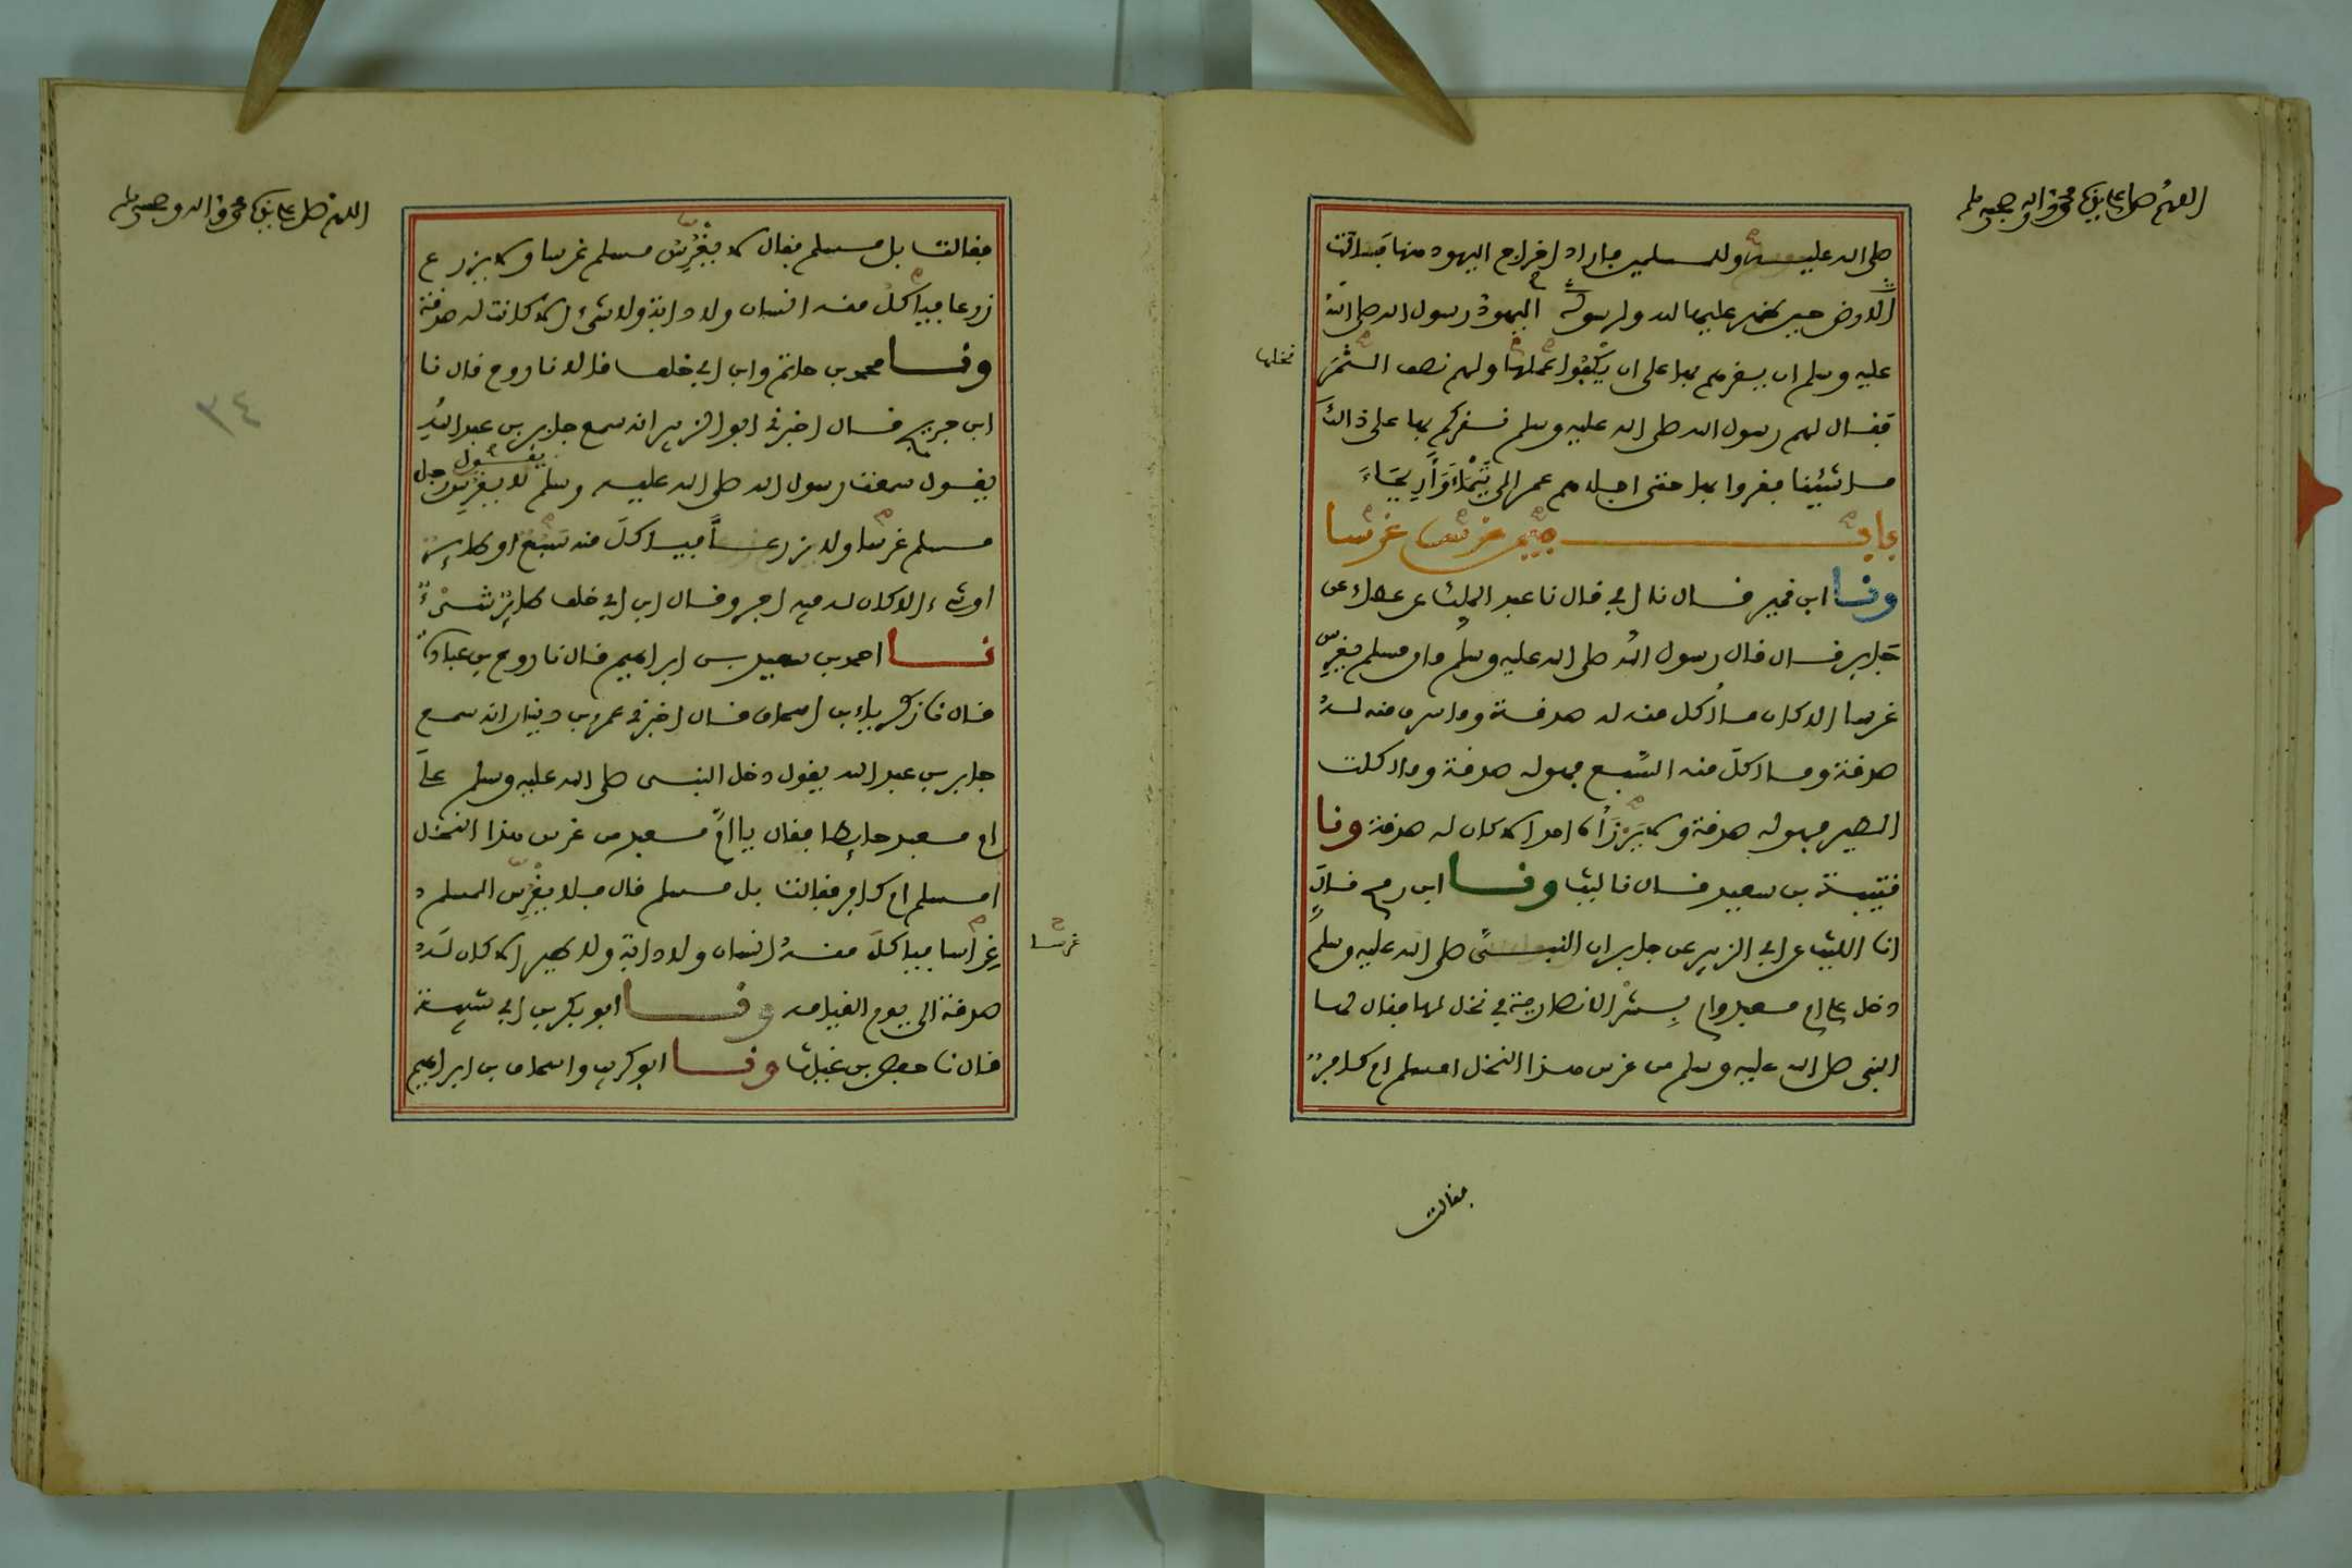 اللهم صل على نبيك محمد واله وصحبه وسلم
صلى الله عليه وللمسلمين فاراد اخراج اليهود منها فسالت
الارض حين ظهر عليها لله ولرسوله اليهود رسول الله صلى الله
عليه وسلم ان يقرهم بها على ان يكفوا عملها ولهم نصف الثمر
نخلها
فقال لهم رسول الله صلى الله عليه وسلم نقركم بها على ذالك
ما شيئنا فقروا بها حتى اجلاهم عمر الى تيماء واريحاء
باب فيمن غرس غرسا
ونا ابن نمير قال نا ابي قال نا عبد الملك عن عطاء عن
جابر قال قال رسول الله صلى الله عليه وسلم ما من مسلم يغرس
غرسا الا كان ما اكل منه له صدقة وما سرق منه له
صدقة وما اكل منه السبع فهو له صدقة وما اكلت
الطير فهو له صدقة ولا يرزأه احد الا كان له صدقة ونا
قتيبة بن سعيد قال نا ليث ونا ابن رمح قال
انا الليث عن ابي الزبير عن جابر ان النبي صلى الله عليه وسلم
دخل على ام معبد وام بشر الانصارية في نخل لها فقال لها
النبي صلى الله عليه وسلم من غرس هذا النخل امسلم ام كافر
فقالت
اللهم صل على نبيك محمد واله وصحبه وسلم
فقالت بل مسلم فقال لا يغرس مسلم غرسا ولا يزرع
زرعا فياكل منه انسان ولا دابة ولا شيء الا كانت له صدقة
ونا محمد بن حاتم وابن ابي خلف قالا نا روح قال نا
ابن جريج قال اخبرني ابو الزبير انه سمع جابر بن عبد الله
٣٤
يقول سمعت رسول الله صلى الله عليه وسلم يقول لا يغرس رجل
مسلم غرسا ولا يزرع فياكل منه سبع او طاير
او شيء الا كان له فيه اجر وقال ابن ابي خلف طاير شيء
نا احمد بن سعيد بن ابراهيم قال نا روح بن عبادة
قال نا زكرياء بن اسحاق قال اخبرني عمرو بن دينار انه سمع
جابر بن عبد الله يقول دخل النبي صلى الله عليه وسلم على
ام معبد حايطا فقال يا ام معبد من غرس هذا النخل
امسلم ام كافر فقالت بل مسلم قال فلا يغرس المسلم
غرسا فياكل منه انسان ولا دابة ولا طير الا كان له
غرسا
صدقة الى يوم القيامه ونا ابو بكر بن ابي شيبة
قال نا حفص بن غياث ونا ابو كريب واسحاق بن ابراهيم